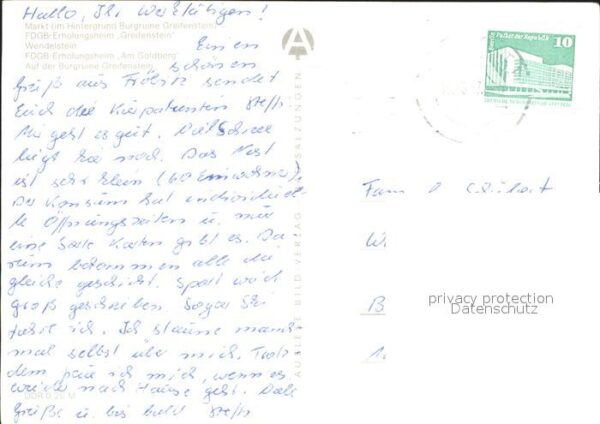 Hallo, Ihr Werktätigen!
Markt (im Hintergrund Burgruine Greifenstein)
FDGB-Erholungsheim „Greifenstein"
Wendelstein
FDGB-Erholungsheim „Am Goldberg"
Auf der Burgruine Greifenstein
Einen
schönen
Gruß aus Fröbitz sendet
Euch die Steffi
Mir geht es gut. Viel Schnee
liegt hier noch. Das Nest
ist sehr klein (60 Einwohner)
Der Konsum hat
Öffnungszeiten u. nur
eine Sorte Karten gibt es. Da-
rum bekommen alle die
gleiche geschickt. Sport wird
groß geschrieben. Sogar Ski
fahre ich. Ich staune manch-
mal selbst über mich. Trotz-
dem freu ich mich, wenn es
wieder nach Hause geht. Viele
Grüße u. bis bald Steffi
DDR 0,20 M
AUSLESE-BILD-VERLAG BAD SALZUNGEN
A
Berlin Palast der Republik
10
DEUTSCHE DEMOKRATISCHE REPUBLIK
Fam
W.
B
1.
privacy protection
Datenschutz